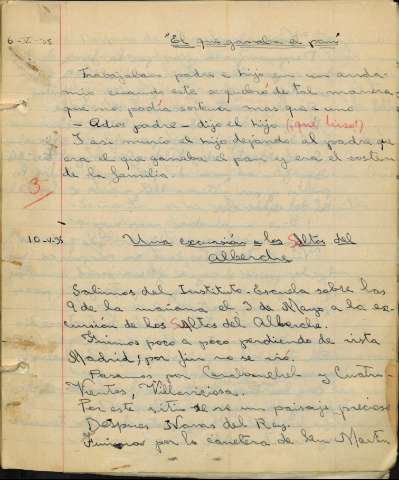 6-V-35
"El que ganaba el pan"
Trabajaban padre e hijo en un anda-
mio cuando este se quebró de tal manera
que no podía sostener mas que a uno
- Adios padre - dijo el hijo (¡qué luso!)
Y asi murió el hijo dejando al padre que
era el que ganaba el pan y era el sosten
de la familia.
3
10-V-35
Una excursión a los Saltos del
Alberche
Salimos del Instituto-Escuela sobre las
9 de la mañana el 3 de Mayo a la ex-
cursión de los Saltos del Alberche.
Fuimos poco a poco perdiendo de vista
Madrid, por fin no se vió.
Pasamos por Carabanchel y Cuatro-
Vientos, Villaviciosa.
Por este sitio se ve un paisaje precioso
Despues Navas del Rey.
Fuimos por la carretera de San Martin